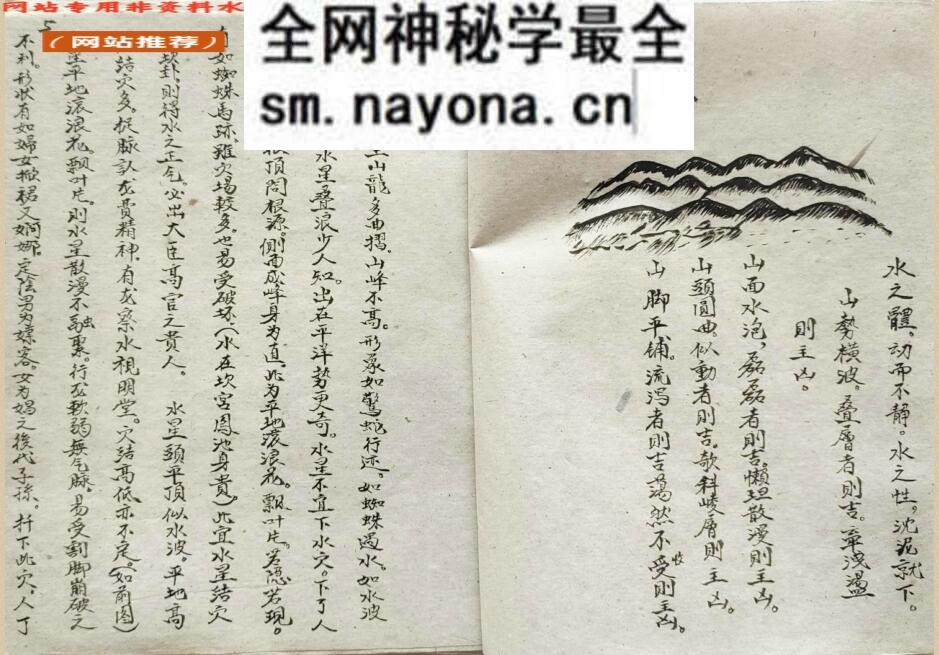 网站专用非资料水
5
(网站推荐)
全网神秘学最全
sm.nayona.cn
水之體。动而不静。水之性。沈泥就下。
山勢横波。叠層者則吉。牵浅盪
則主凶。
山面水泡,磊磊者則吉。懒坦散漫則主凶。
山頭圓曲。似動者則吉。欹斜崚層則主凶。
山脚平铺。流泻者則吉蕩然不收受則主凶。
山龍多曲摺。山峰不高。形象如驚蛇行迹。如蜘蛛過水。如水波
水星叠浪少人知。出在平洋势更奇。水星不宜下水穴。下了人
頂問根源。側面成峰身为直,此为平地滚浪花。飄叶片。若隐若現。
如蜘蛛馬跡,雖穴場較多。也易受破坏。(水在坎宫凤池身貴)此宜水星结穴
坎卦,則得水之正气,必出大臣高官之貴人。 水星頭平頂似水波。平地高
结穴多。捉脉認龙費精神。有龙察水視明堂。穴结高低亦不定。(如前图)
星平地滚浪花,飘叶片。則水星散漫不融聚。行龙軟弱無气脉。易受割脚崩破之
不利。形状有如婦女掀裙又婀娜,定陰男为嫖客。女为娼之後代子孫。扦下此穴,人丁